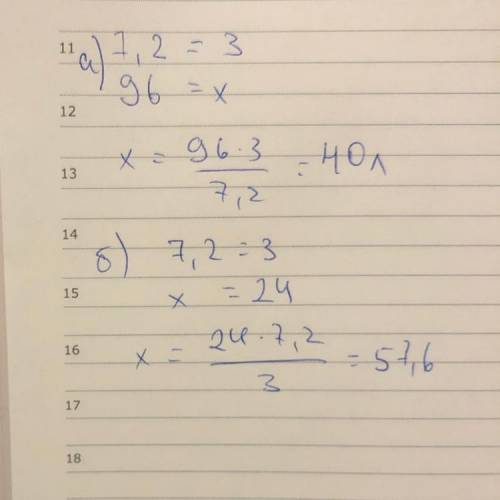 11 а) 7,2 = 3
96 = x
12
13 x = 96·3 / 7,2 = 40л
14
б) 7,2 = 3
15 x = 24
16 x = 24·7,2 / 3 = 57,6
17
18